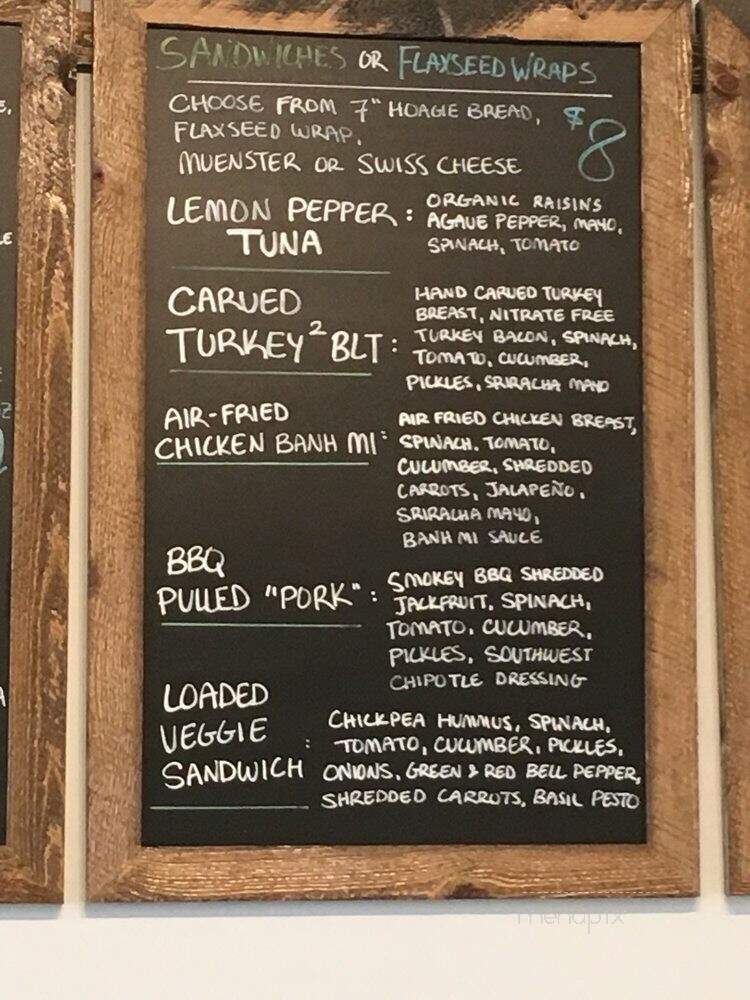 SANDWICHES OR FLAXSEED WRAPS
CHOOSE FROM 7" HOAGIE BREAD,
FLAXSEED WRAP,
MUENSTER OR SWISS CHEESE
$8
LEMON PEPPER
TUNA :
ORGANIC RAISINS
AGAVE PEPPER, MAYO,
SPINACH, TOMATO
CARVED
TURKEY² BLT :
HAND CARVED TURKEY
BREAST, NITRATE FREE
TURKEY BACON, SPINACH,
TOMATO, CUCUMBER,
PICKLES, SRIRACHA MAYO
AIR-FRIED
CHICKEN BANH MI :
AIR FRIED CHICKEN BREAST,
SPINACH, TOMATO,
CUCUMBER, SHREDDED
CARROTS, JALAPEÑO,
SRIRACHA MAYO,
BANH MI SAUCE
BBQ
PULLED "PORK" :
SMOKEY BBQ SHREDDED
JACKFRUIT, SPINACH,
TOMATO, CUCUMBER,
PICKLES, SOUTHWEST
CHIPOTLE DRESSING
LOADED
VEGGIE
SANDWICH :
CHICKPEA HUMMUS, SPINACH,
TOMATO, CUCUMBER, PICKLES,
ONIONS, GREEN & RED BELL PEPPER,
SHREDDED CARROTS, BASIL PESTO
menupix